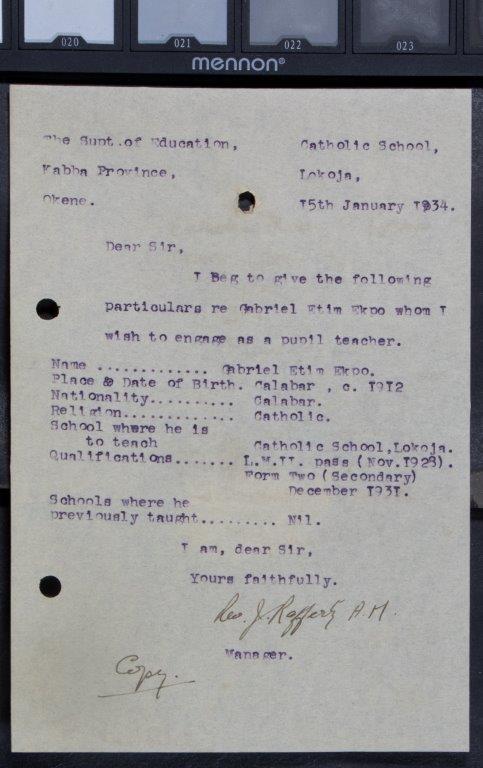 020 021 022 023
mennon®
The Supt.of Education,
Catholic School,
Kabba Province,
Lokoja,
Okene.
I5th January I934.
Dear Sir,
I Beg to give the following
particulars re Gabriel Etim Ekpo whom I
wish to engage as a pupil teacher.
Name ............. Gabriel Etim Ekpo.
Place & Date of Birth. Calabar , c. I9I2
Nationality.......... Calabar.
Religion............. Catholic.
School where he is
to teach Catholic School,Lokoja.
Qualifications....... L.W.II. pass (Nov.I928).
Form Two (Secondary)
December I93I.
Schools where he
previously taught......... Nil.
I am, dear Sir,
Yours faithfully.
Rev. J. Rafferty A.M.
Manager.
Copy.